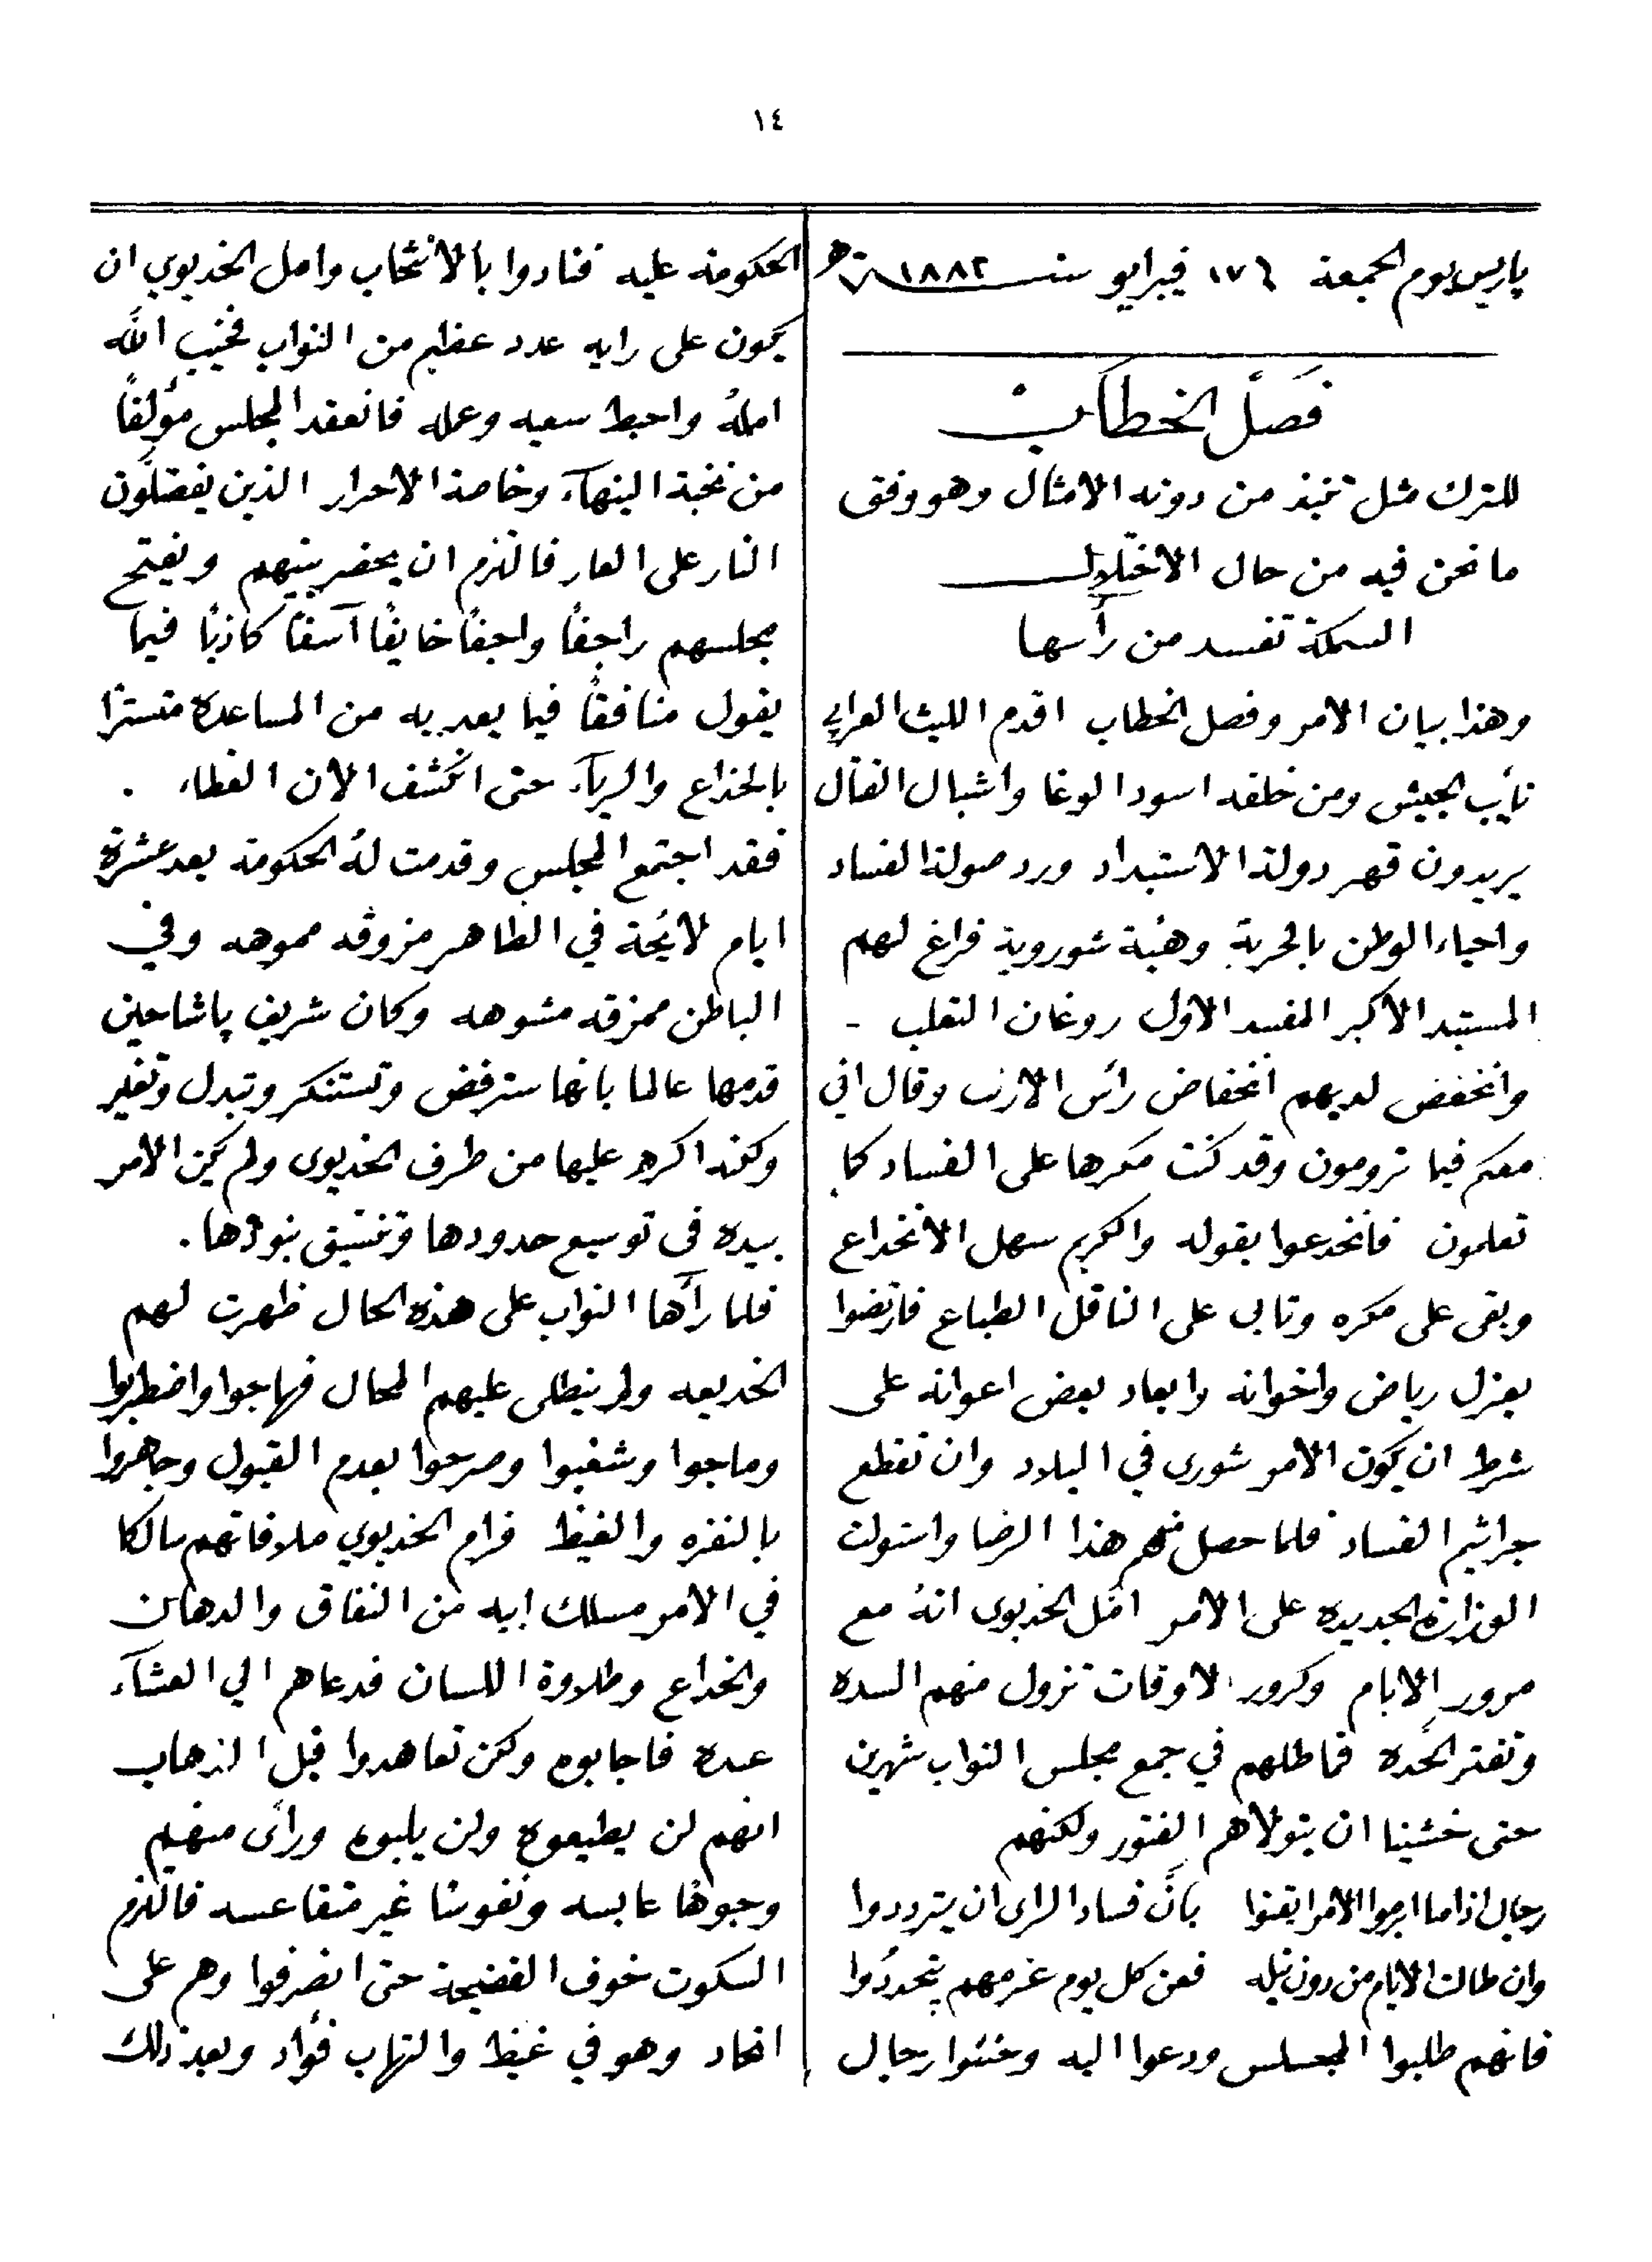 ١٤
پاريس يوم الجمعة ١٧ فيبرايو سنة ١٨٨٢
فصل الخطاب
للترك مثل تخذ من دونه الامثال وهو وفق
ما نحن فيه من حال الاختلال
السمكة تفسد من رأسها
وهذا بيان الامر وفصل الخطاب اقدم الليث العرابي
نأيب الجيش ومن خلفه اسود الوغا واشبال القتال
يريدون قهر دولة الاستبداد ورد صولة الفساد
واحياء الوطن بالحرية وهيئة شوروية فراغ لهم
المستبد الاكبر المفسد الاول روغان الثعلب -
وانخفض لديهم انخفاض رأس الارنب وقال اني
معكم فيما ترومون وقد كنت مكرها على الفساد كما
تعلمون فانخدعوا بقوله والكريم سهل الانخداع
وبقى على مكره وتابى على الناقل الطباع فارتضوا
بعزل رياض واخوانه وابعاد بعض اعوانه على
شرط ان يكون الامر شورى في البلاد وان تقطع
جراثيم الفساد فلما حصل منهم هذا الرضا واستولت
الوزارة الجديدة على الامر امّل الخديوى انهُ مع
مرور الايام وكرور الاوقات تزول منهم الشده
وتفتر الحّده فماطلهم في جمع مجلس النواب شهرين
حتى خشينا ان يتولاهم الفتور ولكنهم
رجال اذا ما ابرموا الامر ايقنوا بانَّ فساد الراى ان يترددوا
وان طالت الايام من دون نيله فعن كل يوم عزمهم يتجددُوا
فانهم طلبوا المجلس ودعوا اليه وخشوا رجال
الحكومة عليه فنادوا بالانتخاب وامل الخديوي ان
يكون على رايه عدد عظيم من النواب فخيب الله
املهُ واحبط سعيه وعمله فانعقد المجلس مؤلفًا
من نخبة النبهآء وخاصة الاحرار الذين يفضلّون
النار على العار فالتزم ان يحضر بينهم ويفتح
مجلسهم راجفًا واجفًا خايفًا آسفًا كاذبًا فيما
يقول منافقًا فيما يعد به من المساعدة متسترًا
بالخداع والريآء حتى انكشف الان الغطاء .
فقد اجتمع المجلس وقدمت لهُ الحكومة بعد عشرة
ايام لائحة في الظاهر مزوقه مموهه وفي
الباطن ممزقه مشوهه وكان شريف پاشا حين
قدمها عالما بانها سترفض وتستنكر وتبدل وتغير
ولكنه اكره عليها من طرف الخديوى ولم يكن الامر
بيده فى توسيع حدودها وتنسيق بنودها .
فلما رأها النواب على هذه الحال ظهرت لهم
الخديعه ولم ينطلى عليهم المحال فهاجوا واضطربوا
وماجوا وشغبوا وصرحوا بعدم القبول وجاهروا
بالنفره والغيظ فرام الخديوي ملاقاتهم سالكا
في الامر مسلك ابيه من النفاق والدهان
والخداع وطلاوة اللسان فدعاهم الي العشآء
عنده فاجابوه ولكن تعاهدوا قبل الذهاب
انهم لن يطيعوه ولن يلبوه ورأى منهم
وجوهًا عابسه ونفوسًا غير متقاعسه فالتزم
السكوت خوف الفضيحة حتى انصرفوا وهم على
اتحاد وهو في غيظ والتهاب فؤاد وبعد ذلك